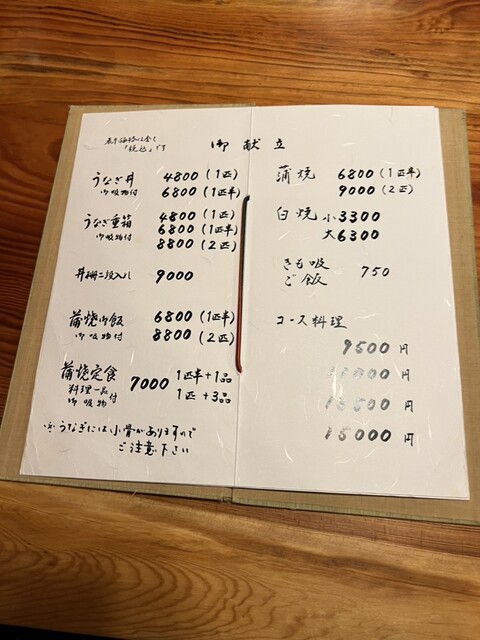 表示価格は全て
「税込」です
御献立
うなぎ丼 4800(1匹)
御吸物付 6800(1匹半)
うなぎ重箱 4800(1匹)
御吸物付 6800(1匹半)
8800(2匹)
丼柵二段入れ 9000
蒲焼御飯 6800(1匹半)
御吸物付 8800(2匹)
蒲焼定食 7000 1匹半+1品
料理一品 1匹+3品
御吸物付
※うなぎには小骨がありますので
ご注意下さい
蒲焼 6800(1匹半)
9000(2匹)
白焼 小3300
大6300
きも吸 750
ご飯
コース料理
9500円
円
13500円
15000円